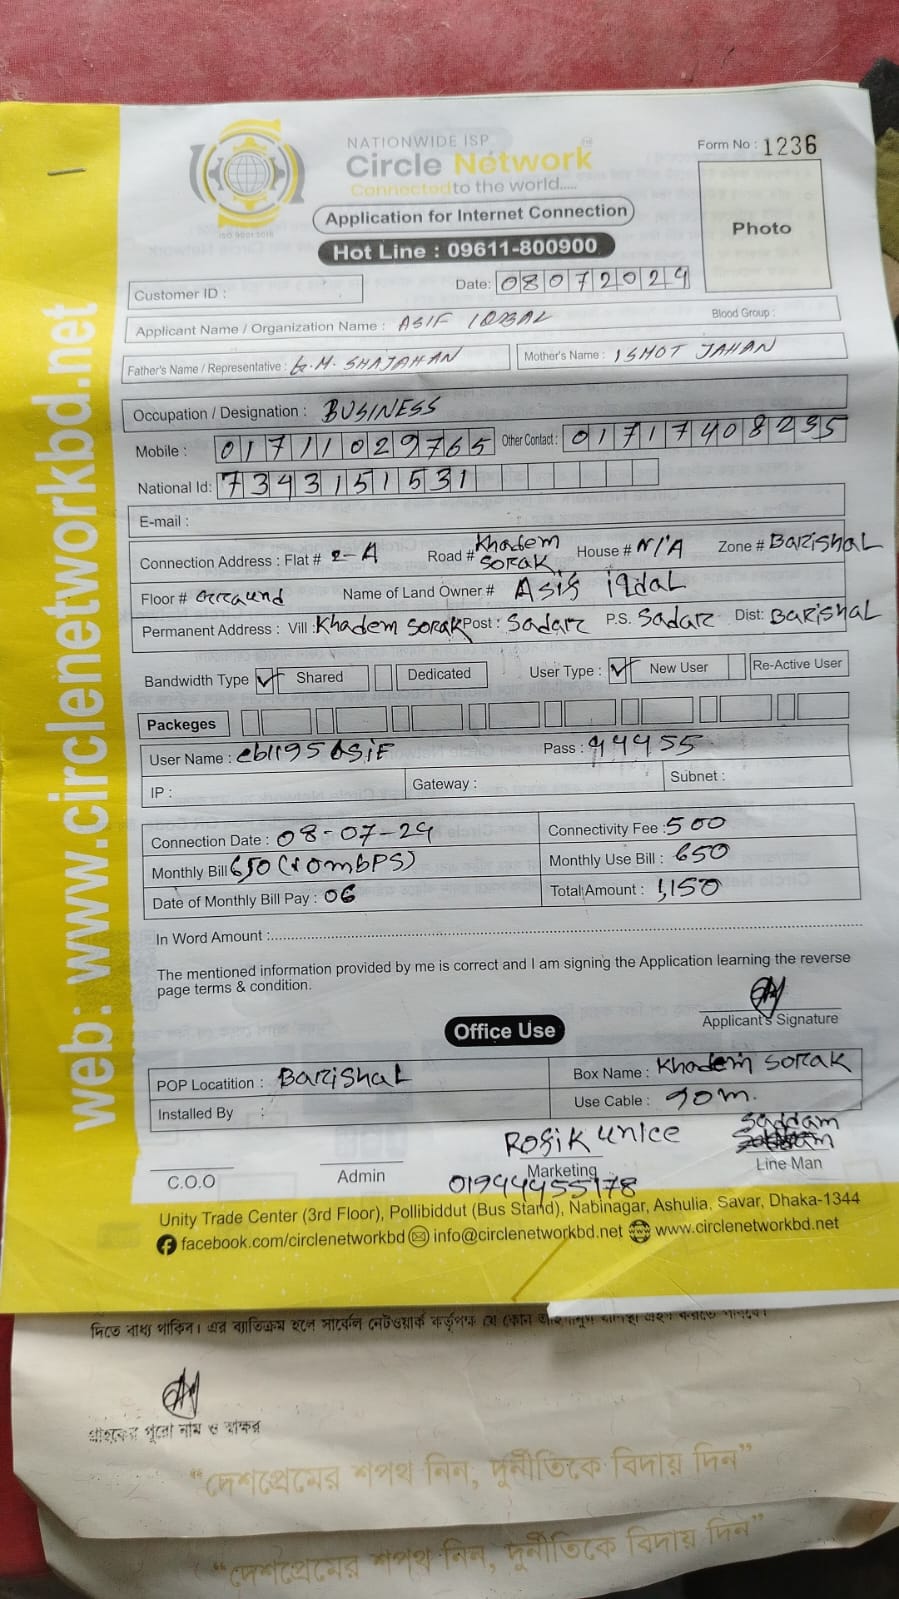 NATIONWIDE ISP
Circle Network
Connected to the world.....
ISO 9001:2015
Form No : 1236
Photo
Application for Internet Connection
Hot Line : 09611-800900
Customer ID :
Date: 08072024
Applicant Name / Organization Name : ASIF IQBAL
Blood Group :
Father's Name / Representative : G.M. SHAJAHAN
Mother's Name : ISMOT JAHAN
Occupation / Designation : BUSINESS
Mobile : 01711029765 Other Contact : 01717408235
National Id: 7343151531
E-mail :
Connection Address : Flat # 2-A Road # Khadem Sorak House # N/A Zone # Barishal
Floor # Graund Name of Land Owner # Asif iqdal
Permanent Address : Vill : Khadem Sorak Post : Sadar P.S. Sadar Dist: Barishal
Bandwidth Type Shared Dedicated User Type : New User Re-Active User
Packeges
User Name : cbl195asif Pass : 44455
IP : Gateway : Subnet :
Connection Date : 08-07-24 Connectivity Fee : 500
Monthly Bill 650 (10mbps) Monthly Use Bill : 650
Date of Monthly Bill Pay : 06 Total Amount : 1,150
In Word Amount :
The mentioned information provided by me is correct and I am signing the Application learning the reverse
page terms & condition.
Applicant's Signature
Office Use
POP Locatition : Barishal Box Name : Khadem Sorak
Installed By : Use Cable : 90m.
Rofik unice Saddam
C.O.O Admin Marketing Line Man
01944455178
Unity Trade Center (3rd Floor), Pollibiddut (Bus Stand), Nabinagar, Ashulia, Savar, Dhaka-1344
facebook.com/circlenetworkbd info@circlenetworkbd.net www.circlenetworkbd.net
web: www.circlenetworkbd.net
দিতে বাধ্য থাকিব। এর ব্যতিক্রম হলে সার্কেল নেটওয়ার্ক কর্তৃপক্ষ যে কোন
গ্রাহকের পুরো নাম ও স্বাক্ষর
“দেশপ্রেমের শপথ নিন, দুর্নীতিকে বিদায় দিন”
“দেশপ্রেমের শপথ নিন, দুর্নীতিকে বিদায় দিন”